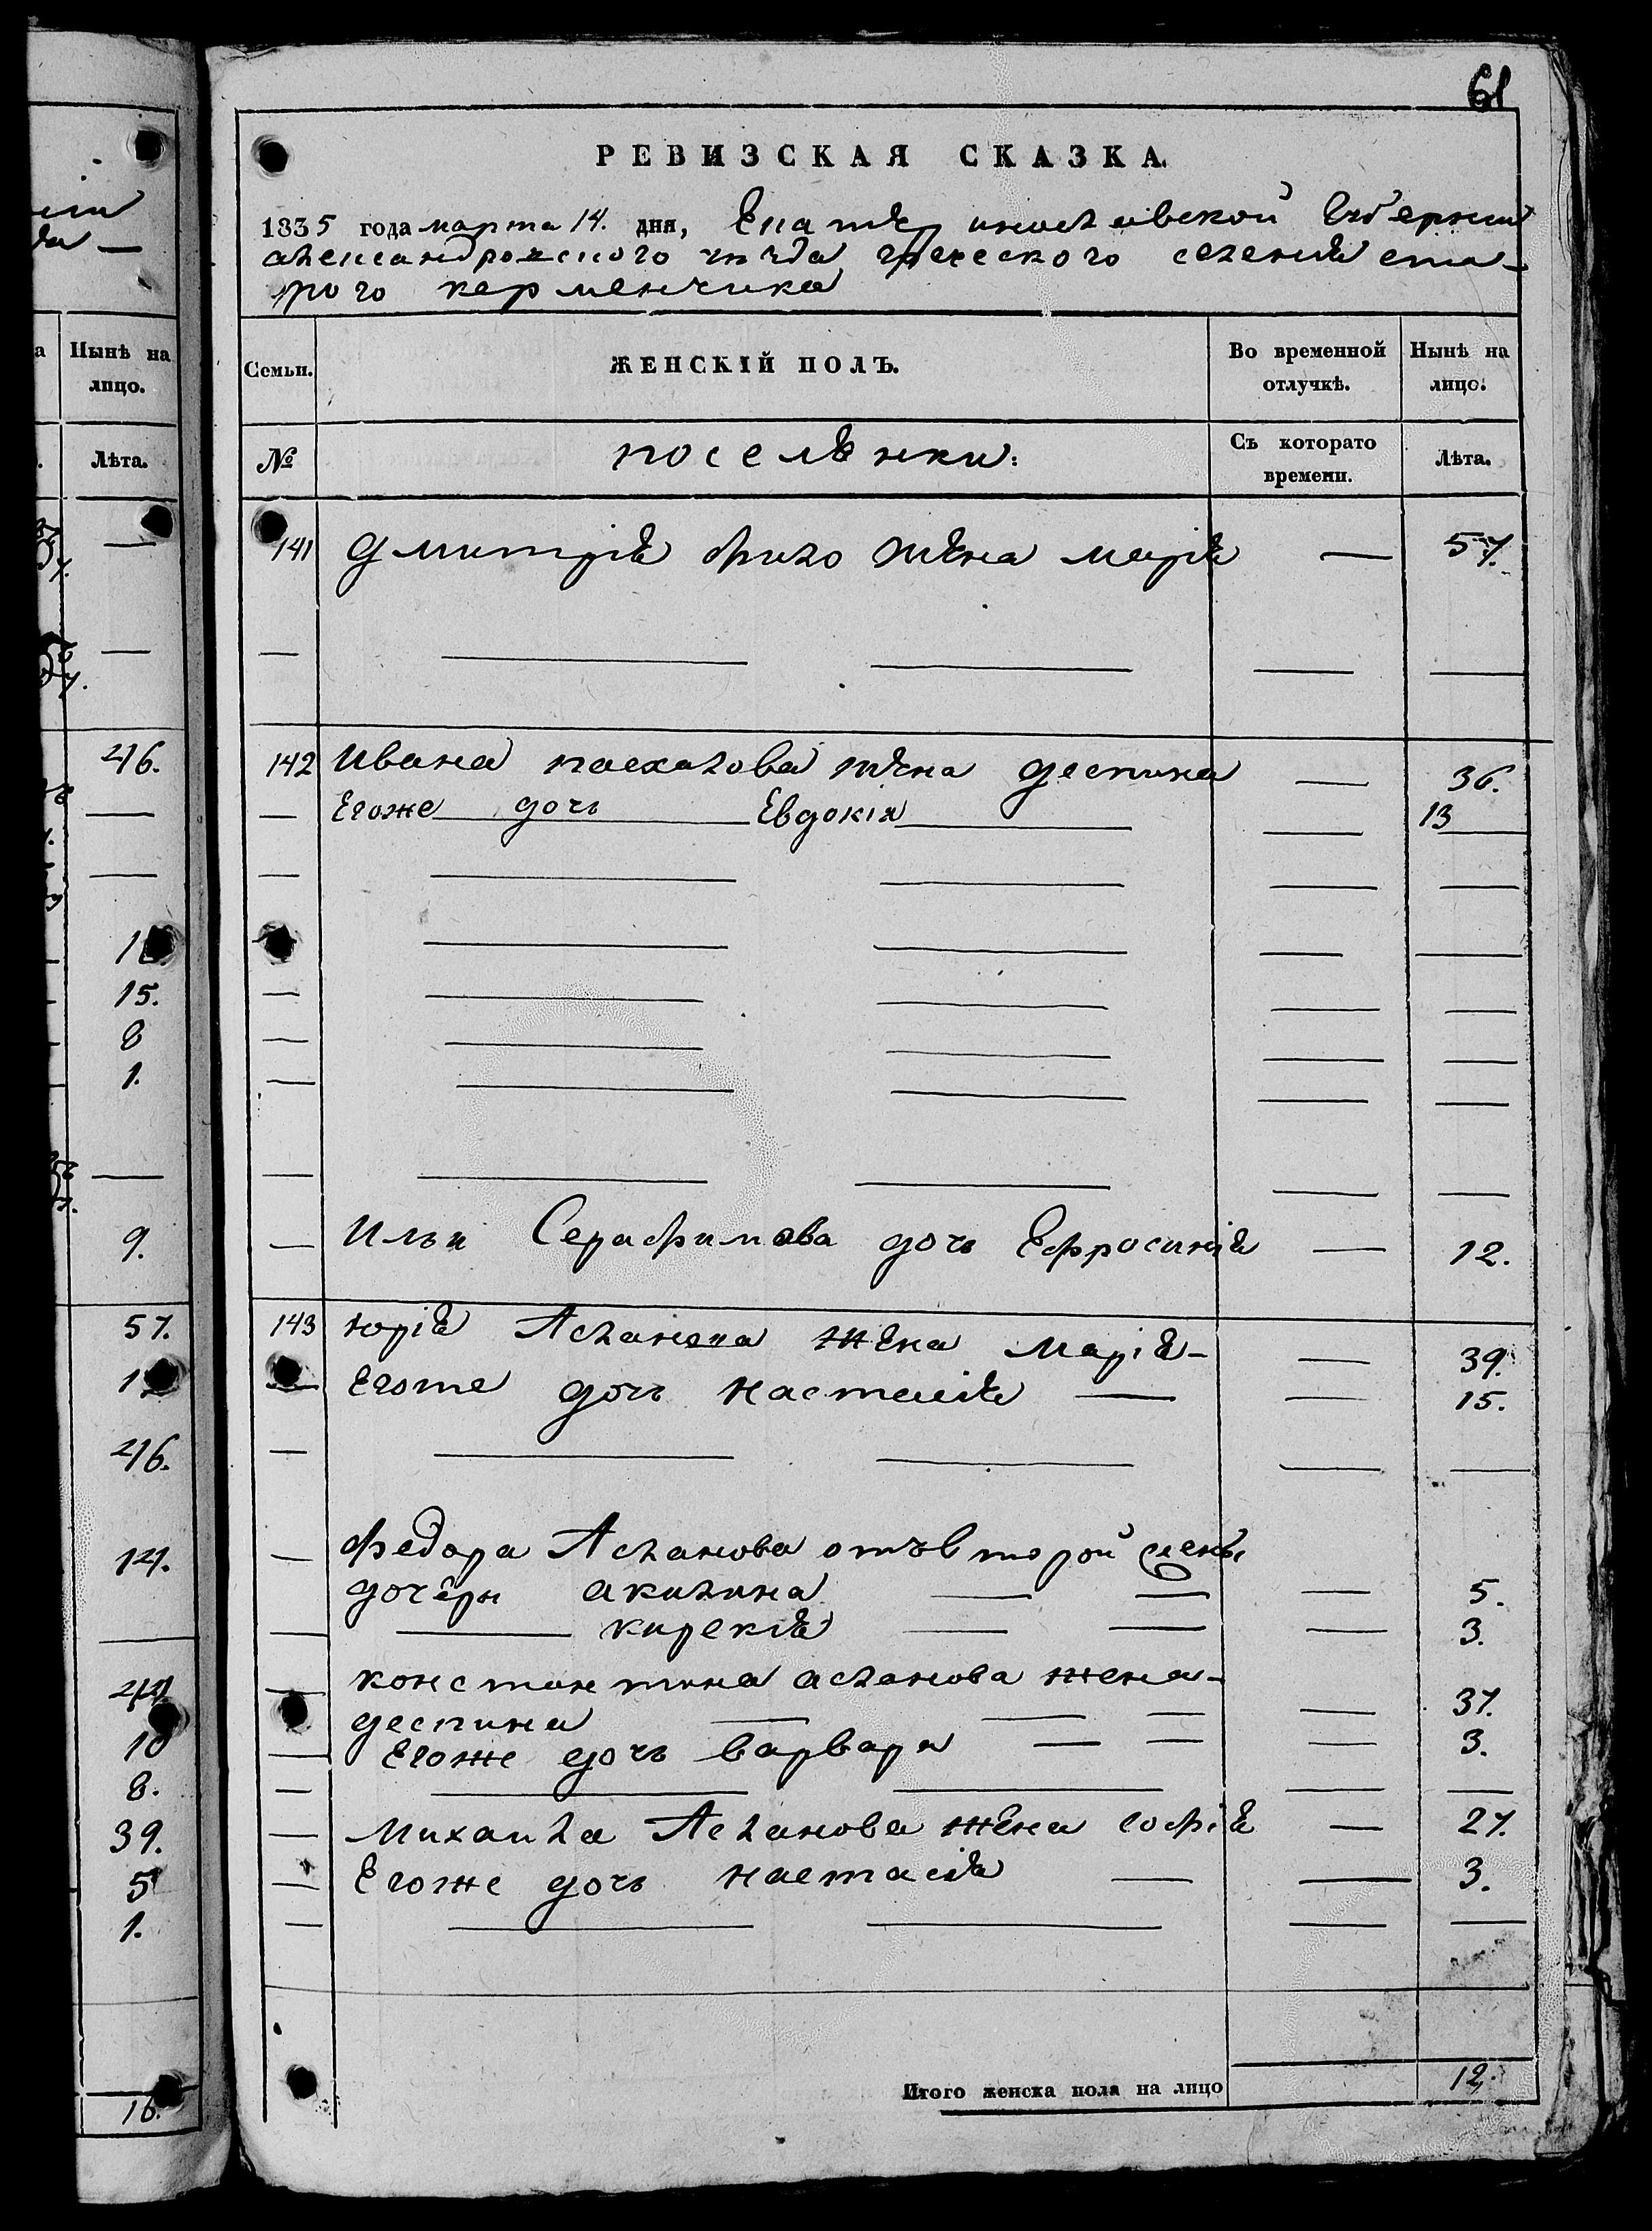 61
РЕВИЗСКАЯ СКАЗКА.
1835 года марта 14. дня, Екатеринославской Губернии
александровского уезда греческого селения ста-
рого керменчика
Нынѣ на
лицо.
Лѣта.
Семьи.
ЖЕНСКІЙ ПОЛЪ.
Во временной
отлучкѣ.
Нынѣ на
лицо.
№
поселѣнки:
Съ котораго
времени.
Лѣта.
141 дмитрія жена марія — 57.
142 Ивана пасхалова жена деспина — 36.
— Егоже дочь Евдокія — 13
— Ильи Серафимова дочь Ефросинія — 12.
143 юрія Асланова жена марія — 39.
— Егоже дочь настасія — 15.
— федора Асланова отъ второй жены
дочери акилина — 5.
— кирекія — 3.
— константина асланова жена
деспина — 37.
— Егоже дочь варвара — 3.
— михаила Асланова жена софія — 27.
— Егоже дочь настасія — 3.
Итого женска пола на лицо 12.
46.
15.
8
1.
9.
57.
46.
14.
44
10
8.
39.
5
1.
16.